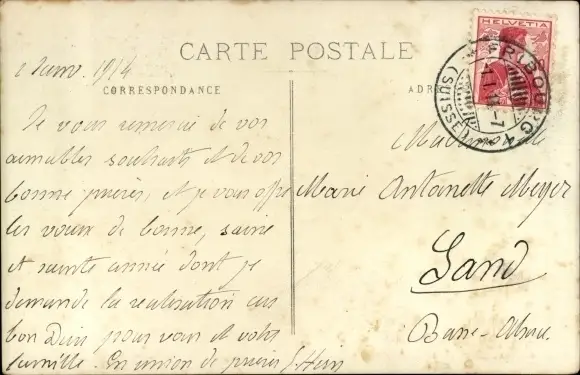 CARTE POSTALE
HELVETIA
FRIBOURG 1
(SUISSE)
1 Janv. 1914
CORRESPONDANCE
ADR
Je vous remercie de vos
aimables souhaits et de vos
bonne prières, et je vous offre
les voeux de bonne, saine
et sainte année dont je
demande la réalisation au
bon Dieu pour vous et votre
famille. En union de prières
Mademoiselle
Marie Antoinette Meyer
Land
Basse-Alsace.